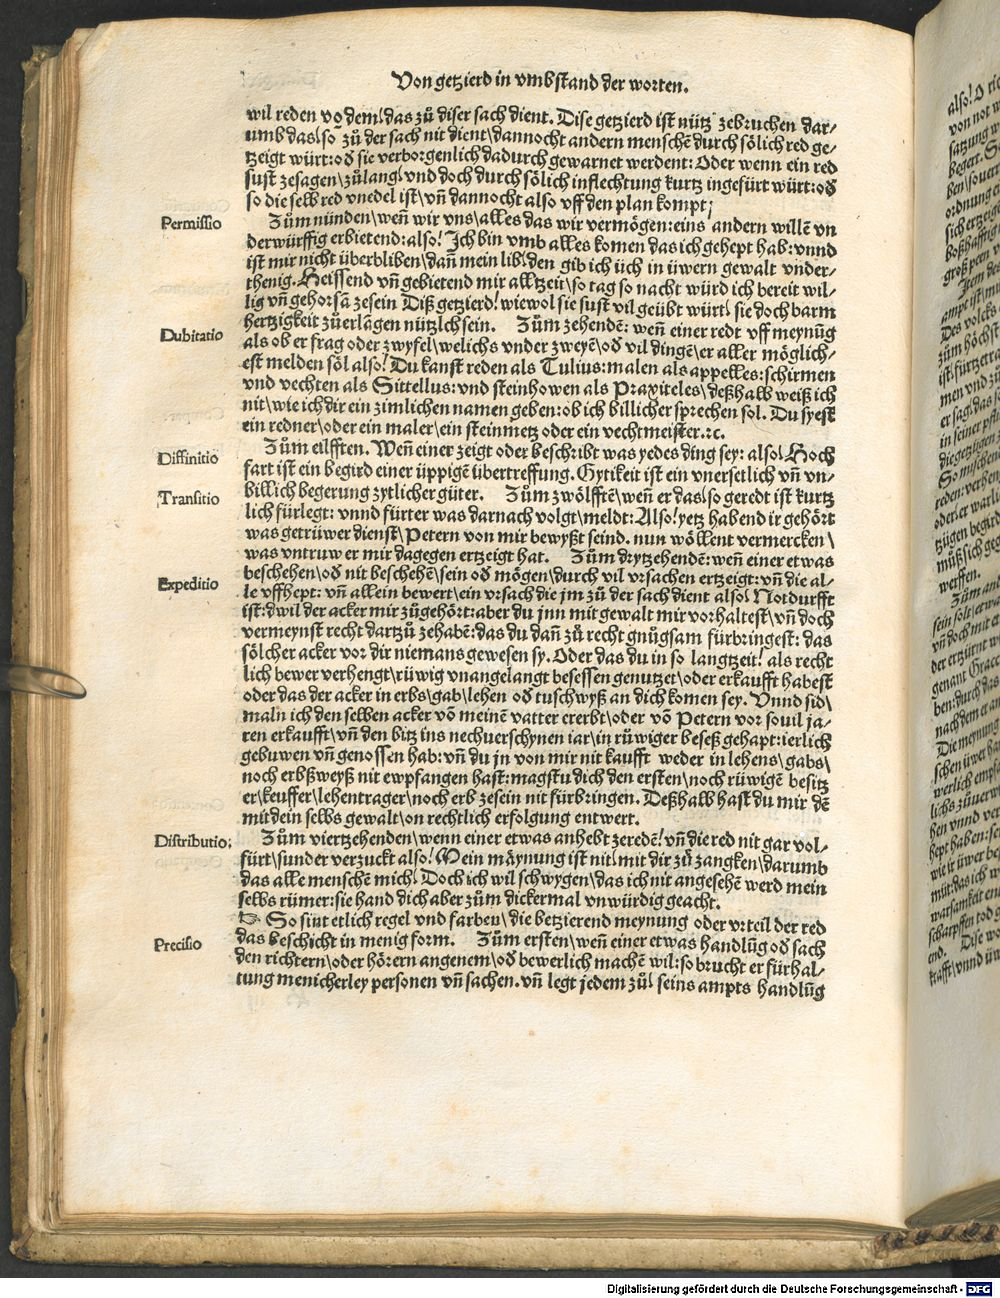 Von getzierd in vmbstand der worten.
wil reden vo̱ dem/ das zů diser sach dient. Dise getzierd ist nütz zebruchen dar⸗
umb das/ so zů der sach nit dient/ dannocht andern menschē durch sölich red ge⸗
tzeigt würt: oď sie verborgenlich dadurch gewarnet werdent: Oder wenn ein red
sust zesagen/ zůlang/ vnd doch durch sölich inflechtung kurtz ingefürt würt: oď
so die selb red vnedel ist/ vn̄ dannocht also vff den plan kompt/
Permissio
Zům nünden/ wen̄ wir vns/ alles das wir vermögen: eins andern willē vn
derwürffig erbietend: also! Ich bin vmb alles komen das ich gehept hab: vnnd
ist mir nicht überbliben/ dan̄ mein lib/ den gib ich üch in üwern gewalt vnder⸗
thenig. Heissend vn̄ gebietend mir alltzeit/ so tag so nacht würd ich bereit wil⸗
lig vn̄ gehorsā zesein Diß getzierd! wiewol sie sust vil geübt würt/ sie doch barm
hertzigkeit zůerlāgen nützlch sein. Zům zehendē: wen̄ einer redt vff meynūg
Dubitatio
als ob er frag oder zwyfel/ welichs vnder zweyē/ oď vil dingē/ er aller möglich⸗
est melden söl also! Du kanst reden als Tulius: malen als appelles: schirmen
vnd vechten als Sittellus: vnd steinhowen als Praxiteles/ deßhalb weiß ich
nit/ wie ich dir ein zimlichen namen geben: ob ich billicher sprechen sol. Du syest
ein redner/ oder ein maler/ ein steinmetz oder ein vechtmeister. ꝛc.
Diffinitio
Zům eilfften. Wen̄ einer zeigt oder beschribt was yedes ding sey: also/ Hoch
fart ist ein begird einer üppigē übertreffung. Gytikeit ist ein vnersetlich vn̄ vn⸗
billich begerung zytlicher güter. Zům zwölfftē/ wen̄ er das/ so geredt ist kurtz
Transitio
lich fürlegt: vnnd fürter was darnach volgt/ meldt: Also! yetz habend ir gehört
was getrüwer dienst/ Petern von mir bewyßt seind. nun wöllent vermercken/
was vntruw er mir dagegen ertzeigt hat. Zům drytzehendē: wen̄ einer etwas
Expeditio
beschehen/ oď nit beschehē/ sein oď mögen/ durch vil vrsachen ertzeigt: vn̄ die al⸗
le vffhept: vn̄ allein bewert/ ein vrsach die jm zů der sach dient also/ Notdurfft
ist: dwil der acker mir zůgehört: aber du jnn mit gewalt mir vorhaltest/ vn̄ doch
vermeynst recht dartzů zehabē: das du dan̄ zů recht gnůgsam fürbringest: das
sölcher acker vor dir niemans gewesen sy. Oder das du in so langtzeit! als recht
lich bewer verhengt/ rüwig vnangelangt besessen genutzet/ oder erkaufft habest
oder das der acker in erbs/ gab/ lehen oď tuschwyß an dich komen sey. Vnnd sid/
maln ich den selben acker vō meinē vatter ererbt/ oder vō Petern vor souil ja⸗
ren erkaufft/ vn̄ den bitz ins nechuerschynen iar/ in rüwiger beseß gehapt: ierlich
gebuwen vn̄ genossen hab: vn̄ du jn von mir nit kaufft weder in lehens/ gabs/
noch erbßweyß nit ewpfangen hast: magstu dich den ersten/ noch rüwigē besitz
er/ keuffer/ lehentrager/ noch erb zesein nit fürbringen. Deßhalb hast du mir dē
mit dein selbs gewalt/ on rechtlich erfolgung entwert.
Distributio;
Zům viertzehenden/ wenn einer etwas anhebt zeredē! vn̄ die red nit gar vol⸗
fürt/ sunder verzuckt also! Mein mäynung ist nit/ mit dir zů zangken/ darumb
das alle menschē mich/ Doch ich wil schwygen/ das ich nit angesehē werd mein
selbs rümer: sie hand dich aber zům dickermal vnwürdig geacht.
☞ So sint etlich regel vnd farben/ die betzierend meynung oder vrteil der red
das beschicht in menig form. Zům ersten/ wen̄ einer etwas handlūg oď sach
Precisio
den richtern/ oder hörern angenem/ oď bewerlich machē wil: so brucht er fürhal⸗
tung menicherley personen vn̄ sachen. vn̄ legt jedem zů/ seins ampts handlūg
Digitalisierung gefördert durch die Deutsche Forschungsgemeinschaft - DFG